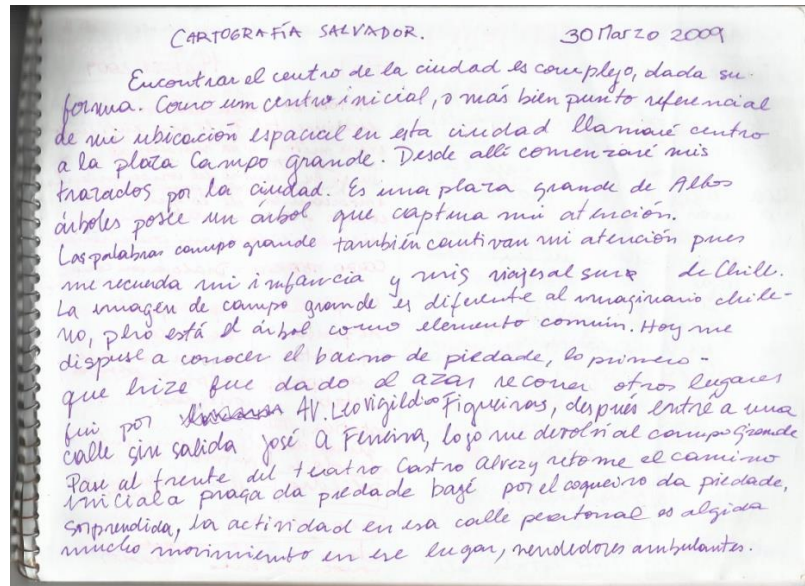 CARTOGRAFÍA SALVADOR. 30 Marzo 2009
Encontrar el centro de la ciudad es complejo, dada su
forma. Como un centro inicial, o más bien punto referencial
de mi ubicación espacial en esta ciudad llamaré centro
a la plaza Campo grande. Desde allí comenzaré mis
trazados por la ciudad. Es una plaza grande de Altos
árboles posee un árbol que captura mi atención.
Las palabras campo grande también cautivan mi atención pues
me recuerda mi infancia y mis viajes al sur de Chile.
La imagen de campo grande es diferente al imaginario chile-
no, pero está el árbol como elemento común. Hoy me
dispuse a conocer el bairro de piedade, lo primero -
que hize fue dado al azar recorrer otros lugares
fui por AV. Leovigildio Figueiras, después entré a una
calle sin salida José A Ferreira, logo me devolví al campo Grande
Pase al frente del teatro Castro Alvez y retome el camino
inicial a praça da piedade bajé por el coqueiro da piedade,
sorprendida, la actividad en esa calle peatonal es algida
mucho movimiento en ese lugar, vendedores ambulantes.